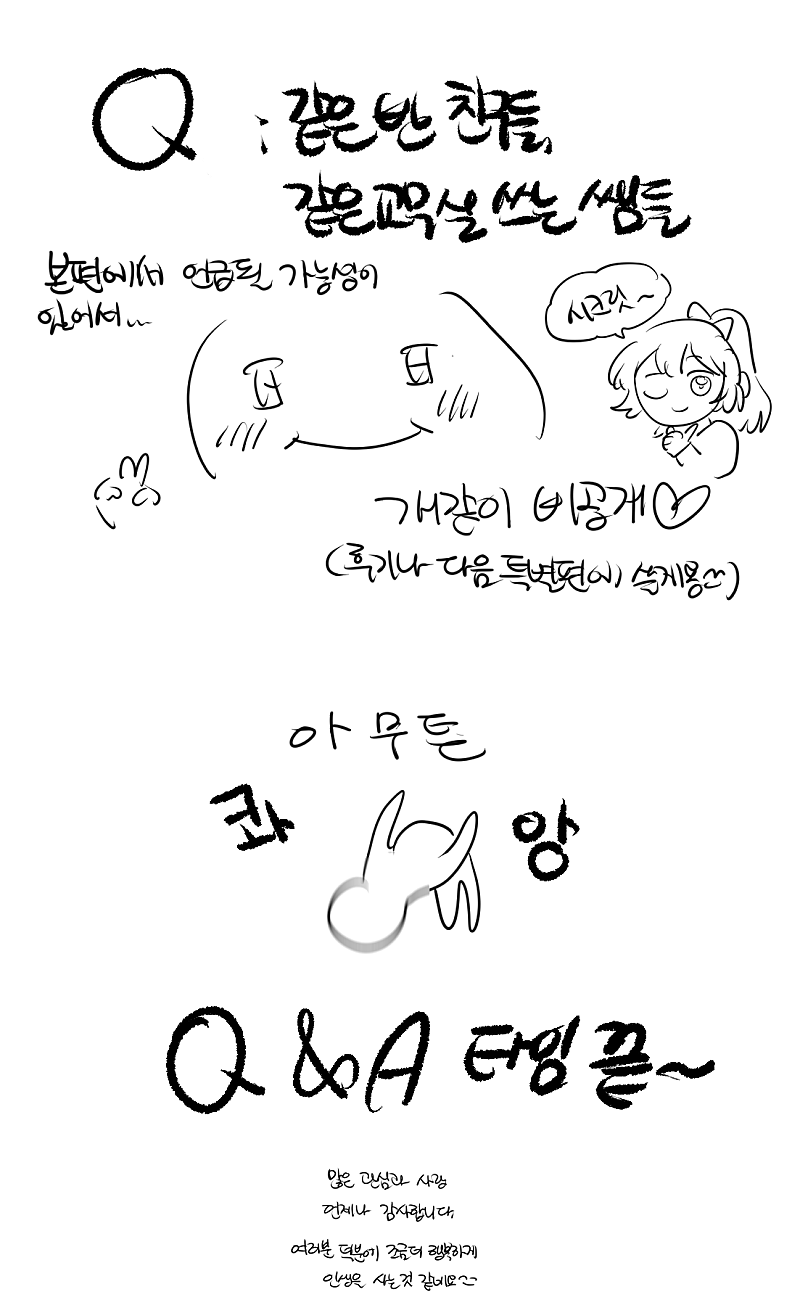 Q : 같은 반 친구들,
같은 교무실 쓰는 쌤들
본편에서 언급될 가능성이
있어서...
시크릿~
개같이 비공개♡
(후기나 다음 특별편에 쓸게용^^)
아무튼
콰 앙
Q & A 타임 끝~
많은 관심과 사랑
언제나 감사합니다.
여러분 덕분에 조금 더 행복하게
인생을 사는 것 같네요^^